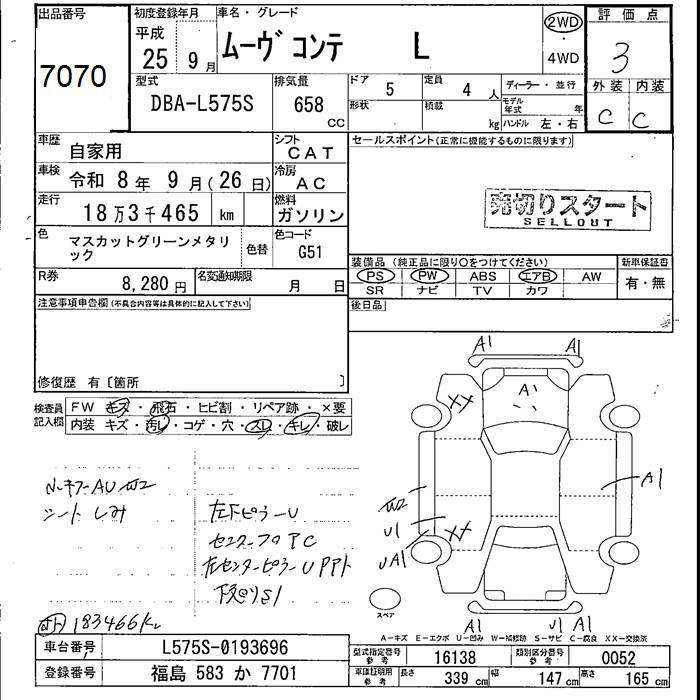 出品番号
7070
初度登録年月
平成
25年 9月
車名・グレード
ムーヴ コンテ L
2WD
・
4WD
評価点
3
外装 内装
C C
型式
DBA-L575S
排気量
658
CC
ドア 5
形状
定員 4人
積載 kg
ディーラー・並行
モデル年式 年
ハンドル 左・右
車歴 自家用
シフト CAT
車検 令和 8年 9月(26日)
冷房 AC
走行 18万3千465 km
燃料 ガソリン
色 マスカットグリーンメタリック
色替
色コード G51
R券 8,280円
名変通知期限 月 日
セールスポイント(正常に機能するものに限ります)
売切りスタート
SELLOUT
装備品(純正品に限り○をつけてください)
新車保証書
PS PW ABS エアB AW
有・無
SR ナビ TV カワ
後日品
注意事項申告欄(不具合内容等は具体的に記入して下さい)
修復歴 有〔箇所 〕
検査員記入欄
FW キズ・飛石・ヒビ割・リペア跡・×要
内装 キズ・汚レ・コゲ・穴・スレ・キレ・破レ
シートしみ
左下ピラーU
A1 A1
A1
XX
A1
W2
U1
XX
UA1
A1 U1 A1
スペア
183466K
A-キズ E-エクボ U-凹み W-補修跡 S-サビ C-腐食 XX-交換済
車台番号 L575S-0193696
登録番号 福島 583 か 7701
型式指定番号 参考 16138
類別区分番号 参考 0052
車庫証明用 参考
長さ 339 cm
幅 147 cm
高さ 165 cm